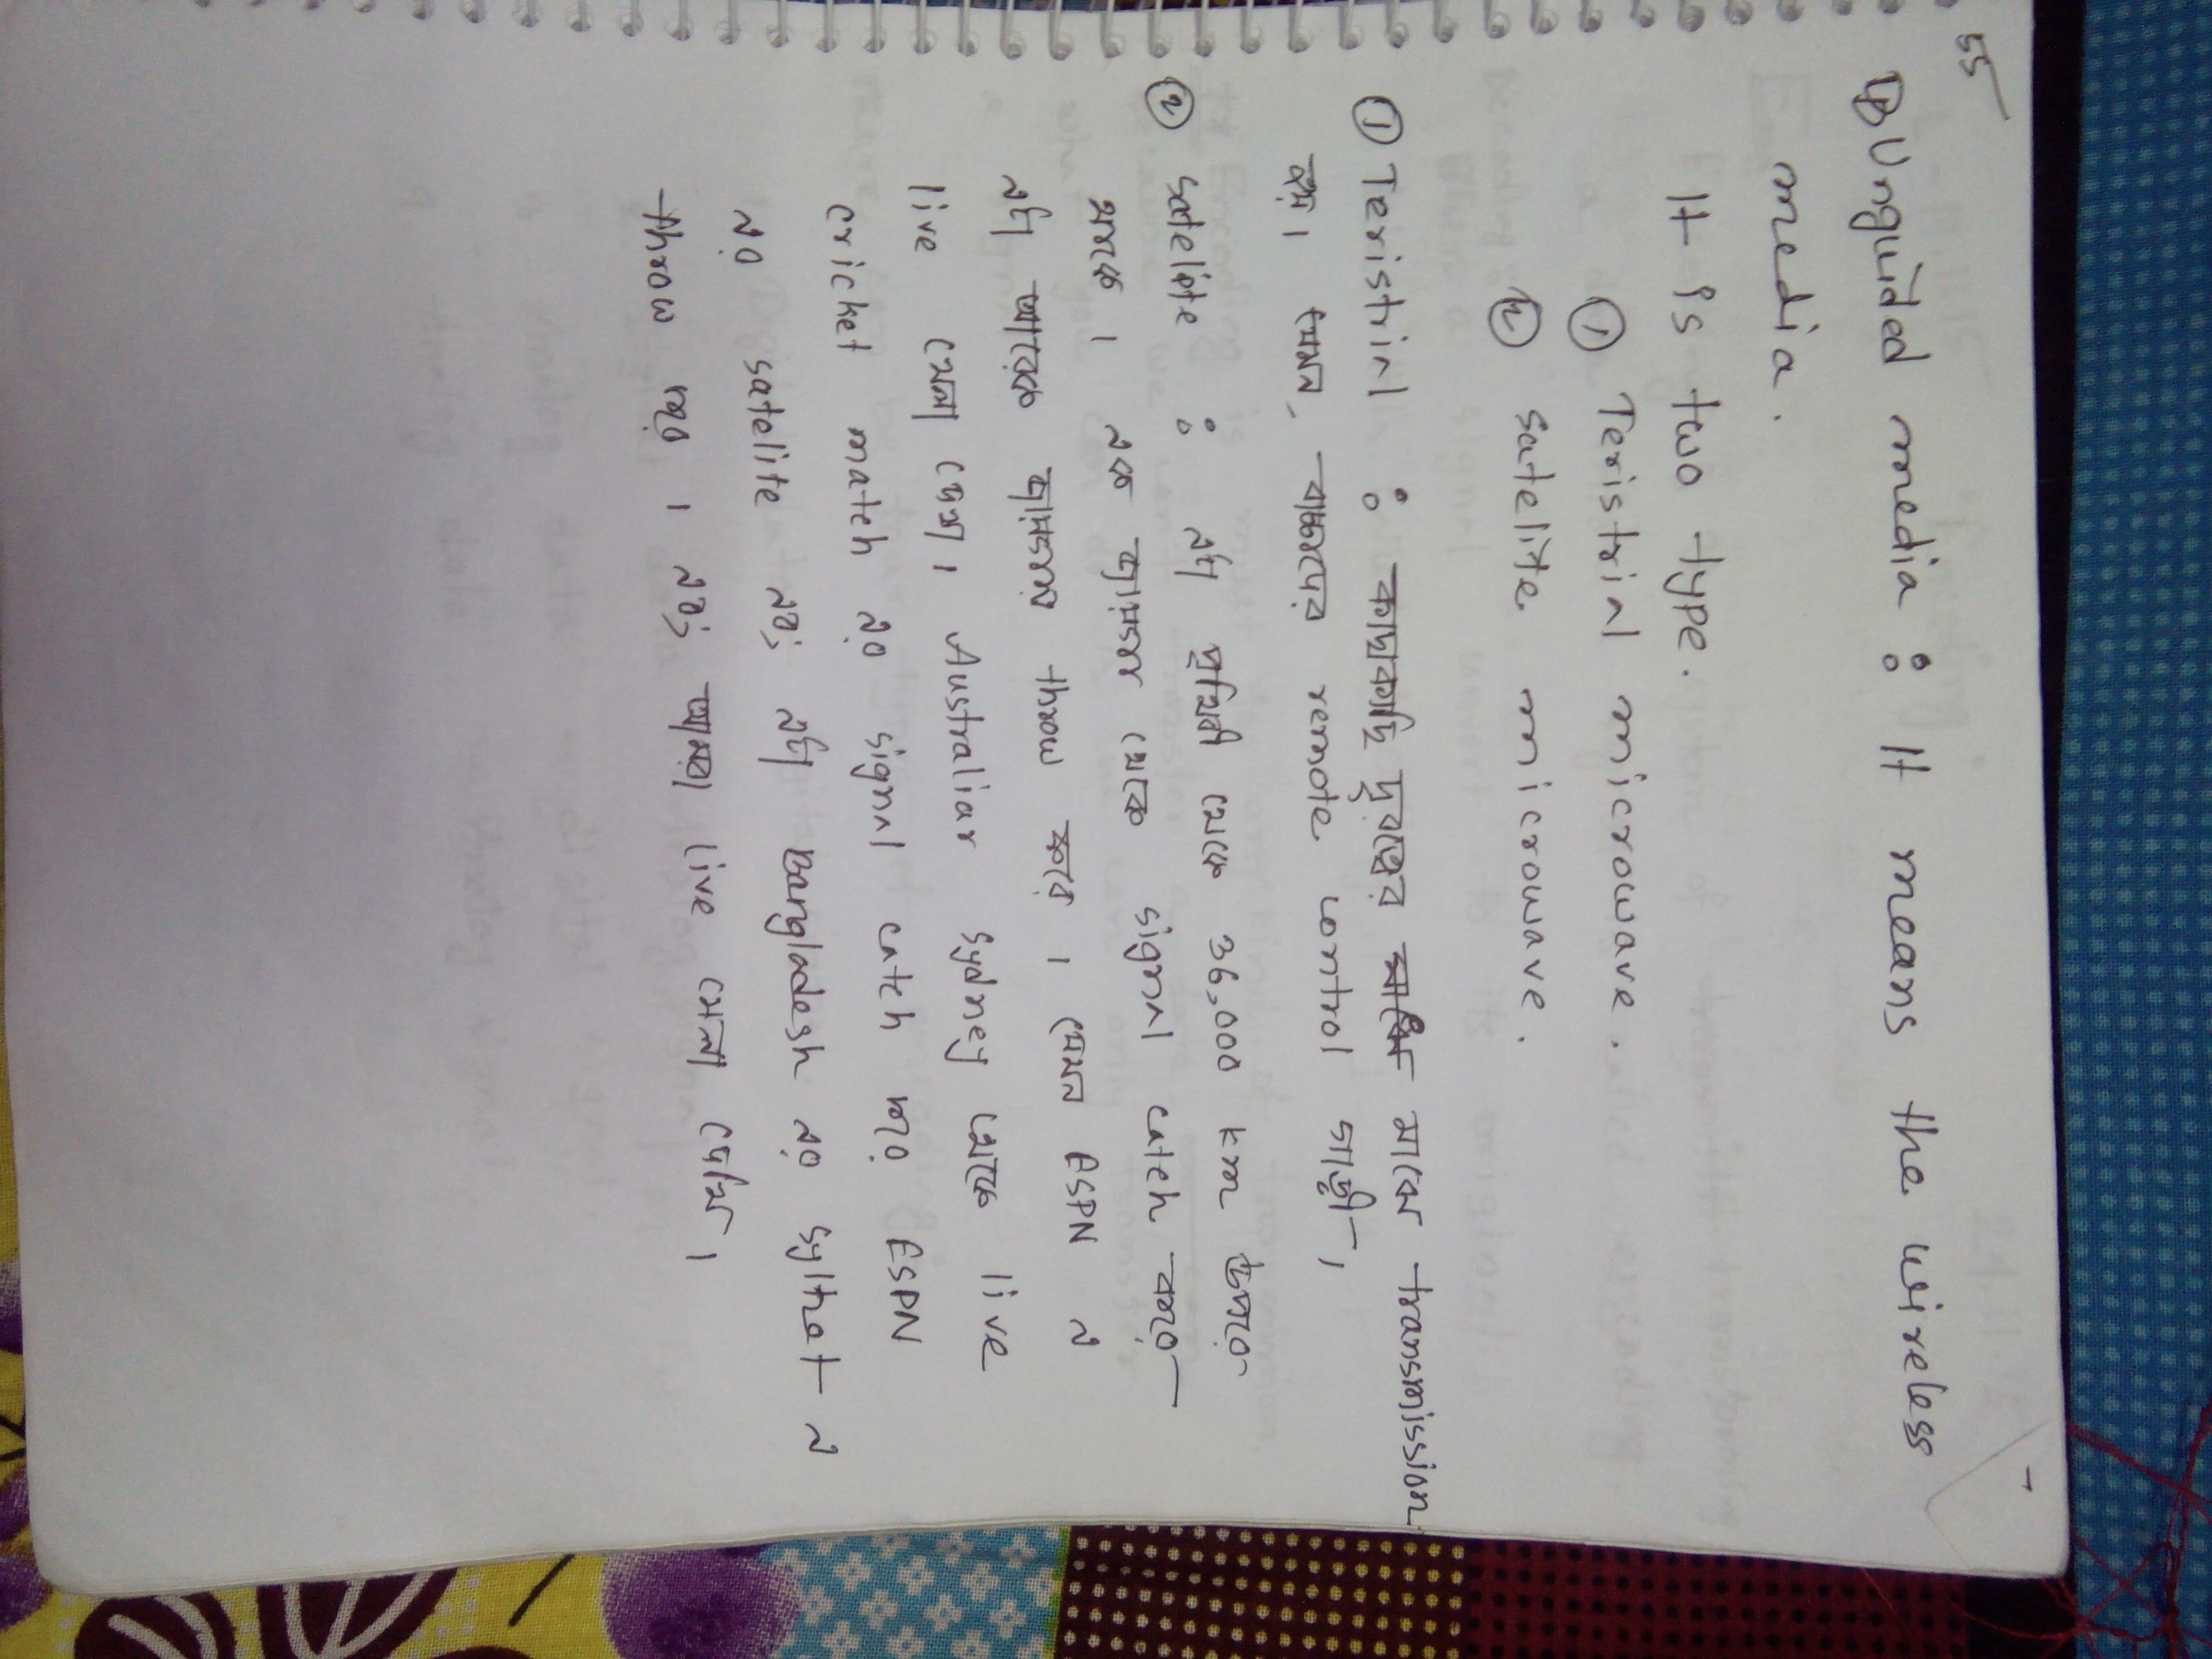 55
Unguided media : It means the wireless
media.
It is two type.
① Teristrial microwave.
② Satelite microwave.
① Teristrial : কাছাকাছি দূরত্বের মাঝে transmission
হয়। যেমন, বাচ্চাদের remote control গাড়ী।
② Satelite : এটা পৃথিবী থেকে 36,000 km উপরে
থাকে। এক জায়গা থেকে signal catch করে
এটা আরেক জায়গায় throw করে। যেমন ESPN এ
live খেলা দেখা। Australiar Sydney থেকে live
cricket match এর signal catch করে ESPN
এর satelite এবং এটা Bangladesh এর Sylhet এ
throw করে। এবং আমরা live খেলা দেখি।